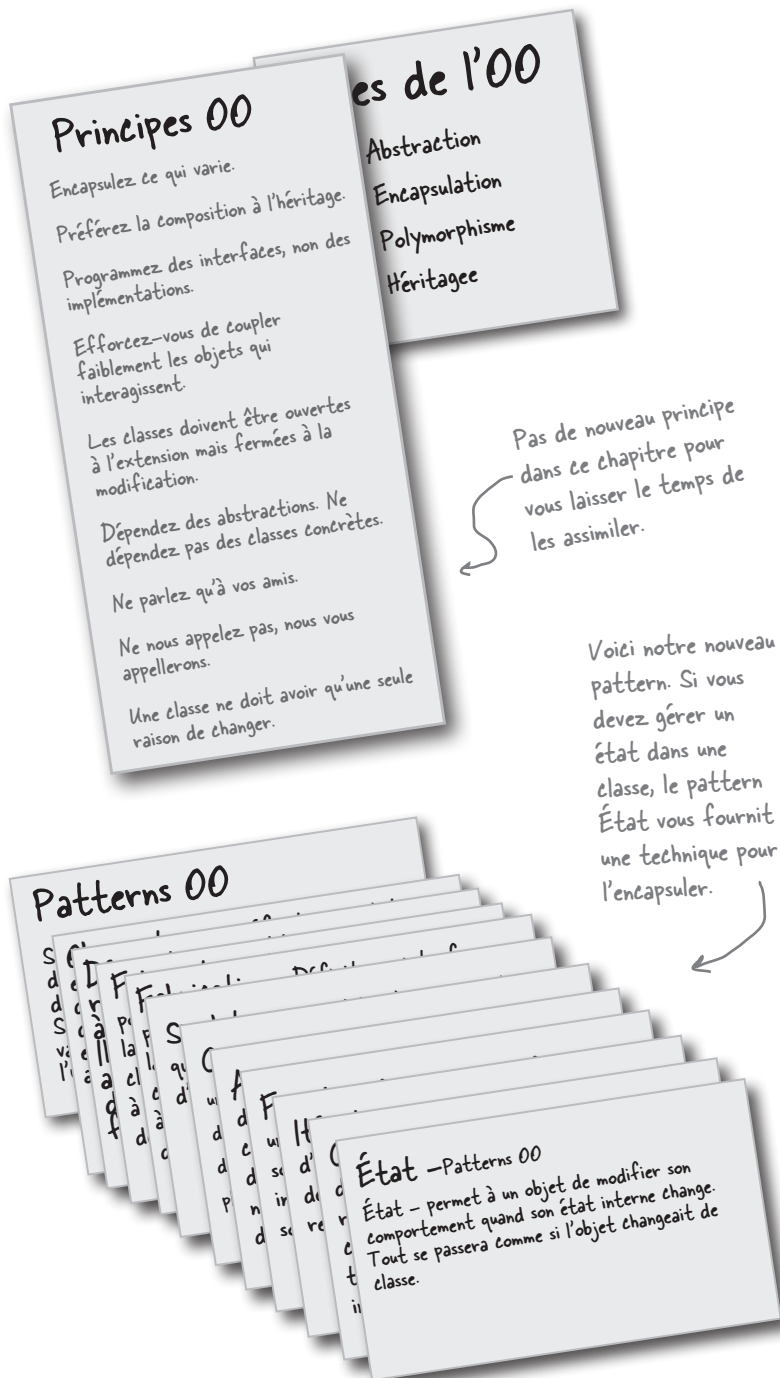 Principes OO
Encapsulez ce qui varie.
Préférez la composition à l'héritage.
Programmez des interfaces, non des
implémentations.
Efforcez-vous de coupler
faiblement les objets qui
interagissent.
Les classes doivent être ouvertes
à l'extension mais fermées à la
modification.
Dépendez des abstractions. Ne
dépendez pas des classes concrètes.
Ne parlez qu'à vos amis.
Ne nous appelez pas, nous vous
appellerons.
Une classe ne doit avoir qu'une seule
raison de changer.
es de l'OO
Abstraction
Encapsulation
Polymorphisme
Héritagee
Pas de nouveau principe
dans ce chapitre pour
vous laisser le temps de
les assimiler.
Voici notre nouveau
pattern. Si vous
devez gérer un
état dans une
classe, le pattern
État vous fournit
une technique pour
l'encapsuler.
Patterns OO
État –Patterns OO
État – permet à un objet de modifier son
comportement quand son état interne change.
Tout se passera comme si l'objet changeait de
classe.